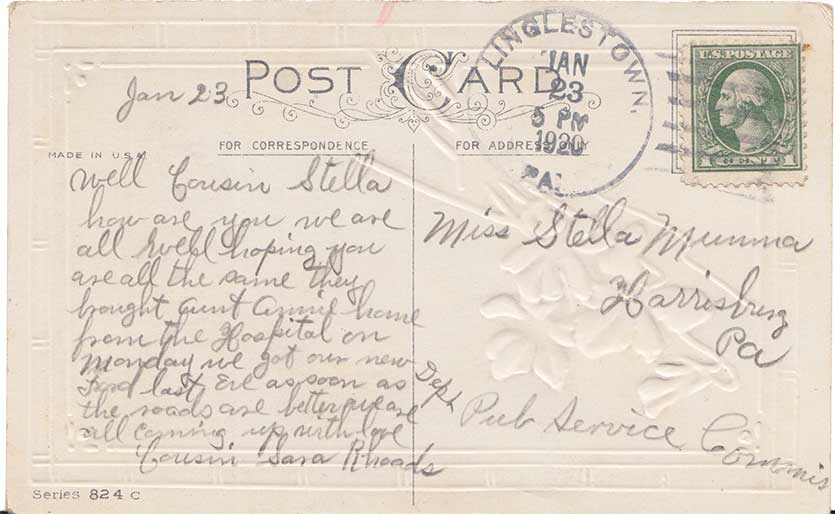 POST CARD
Jan 23
LINGLESTOWN,
JAN
23
5 PM
1920
PA.
U.S. POSTAGE
1 CENTS 1
FOR CORRESPONDENCE
FOR ADDRESS ONLY
MADE IN U.S.A
Well Cousin Stella
how are you we are
all well hoping you
are all the same they
brought Aunt Annie home
from the Hospital on
Monday we got our new
Ford last Eve as soon as
the roads are better we are
all coming up with love
Cousin Sara Rhoads
Miss Stella Mumma
Harrisburg
Pa
Dept
Pub Service Commis
Series 824 C